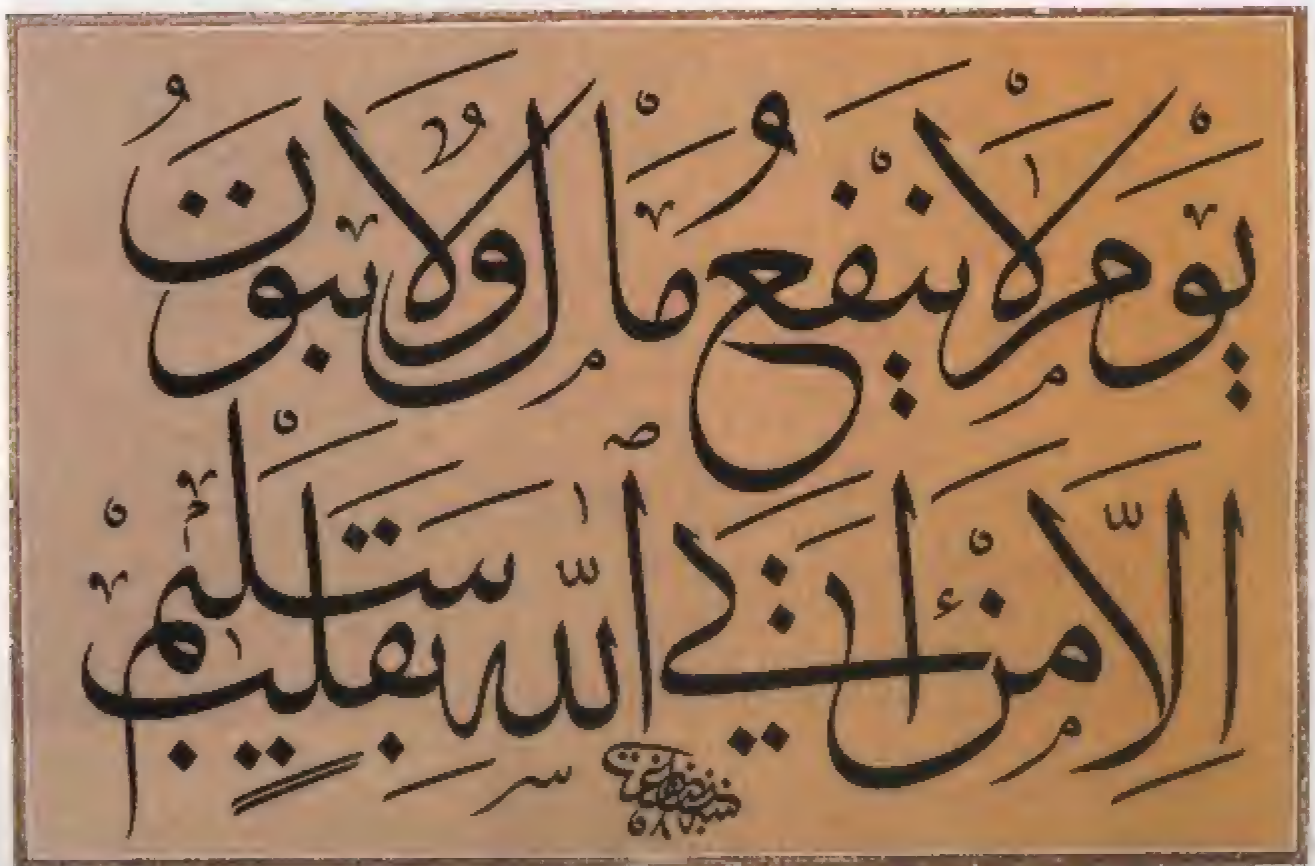 يَوْمَ لَا يَنْفَعُ مَالٌ وَلَا بَنُونَ
إِلَّا مَنْ أَتَى اللّٰهَ بِقَلْبٍ سَلِيمٍ